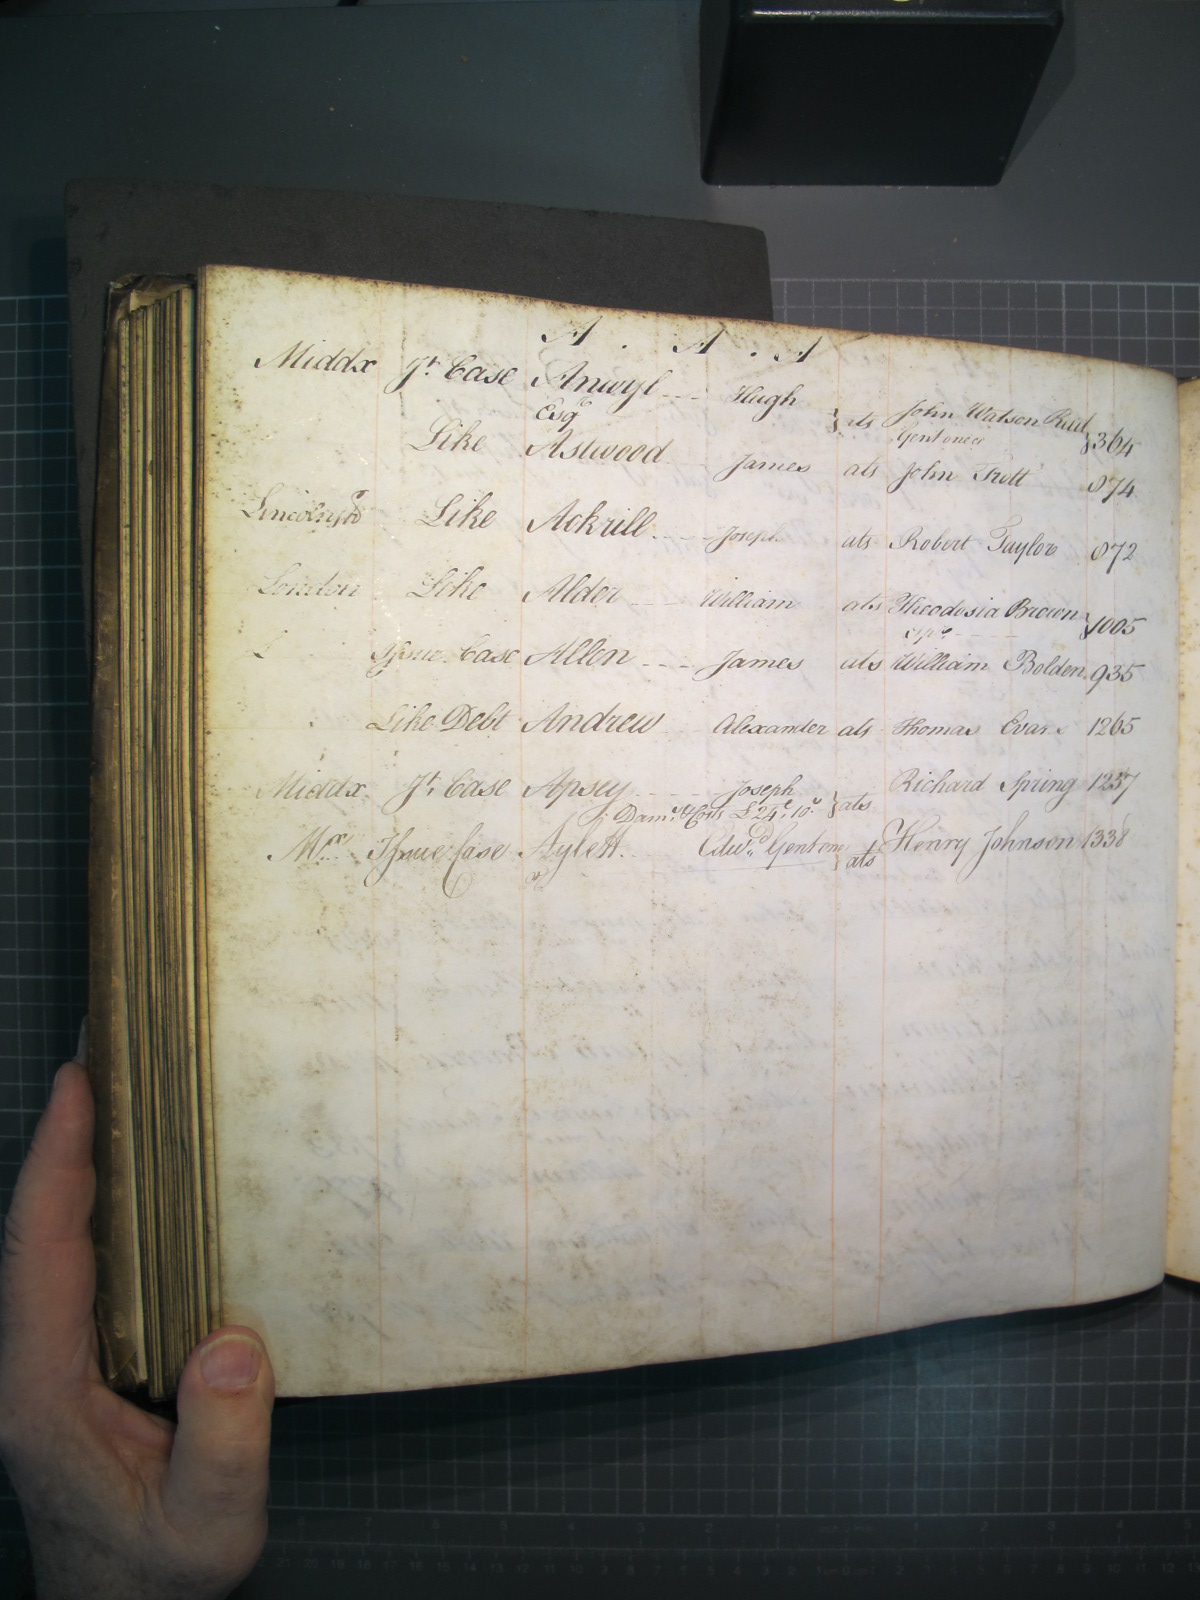 A . A . A
Middx Jt. Case Anwyl Hugh
Esqe } ats John Watson Reid
Gent one &c } 364
Like Astwood James ats John Trott 874
Lincolnsh Like Ackrill Joseph ats Robert Taylor 872
London Like Alder William ats Theodosia Brown } 1005
Issue Case Allen James ats William Bolden 935
Like Debt Andrew Alexander ats Thomas Evans 1265
Middx Jt. Case Apsey Joseph } ats Richard Spring 1237
Dams & Costs £24: 10s
Mx Issue Case Aylett Edwd Gent one } ats Henry Johnson 1338